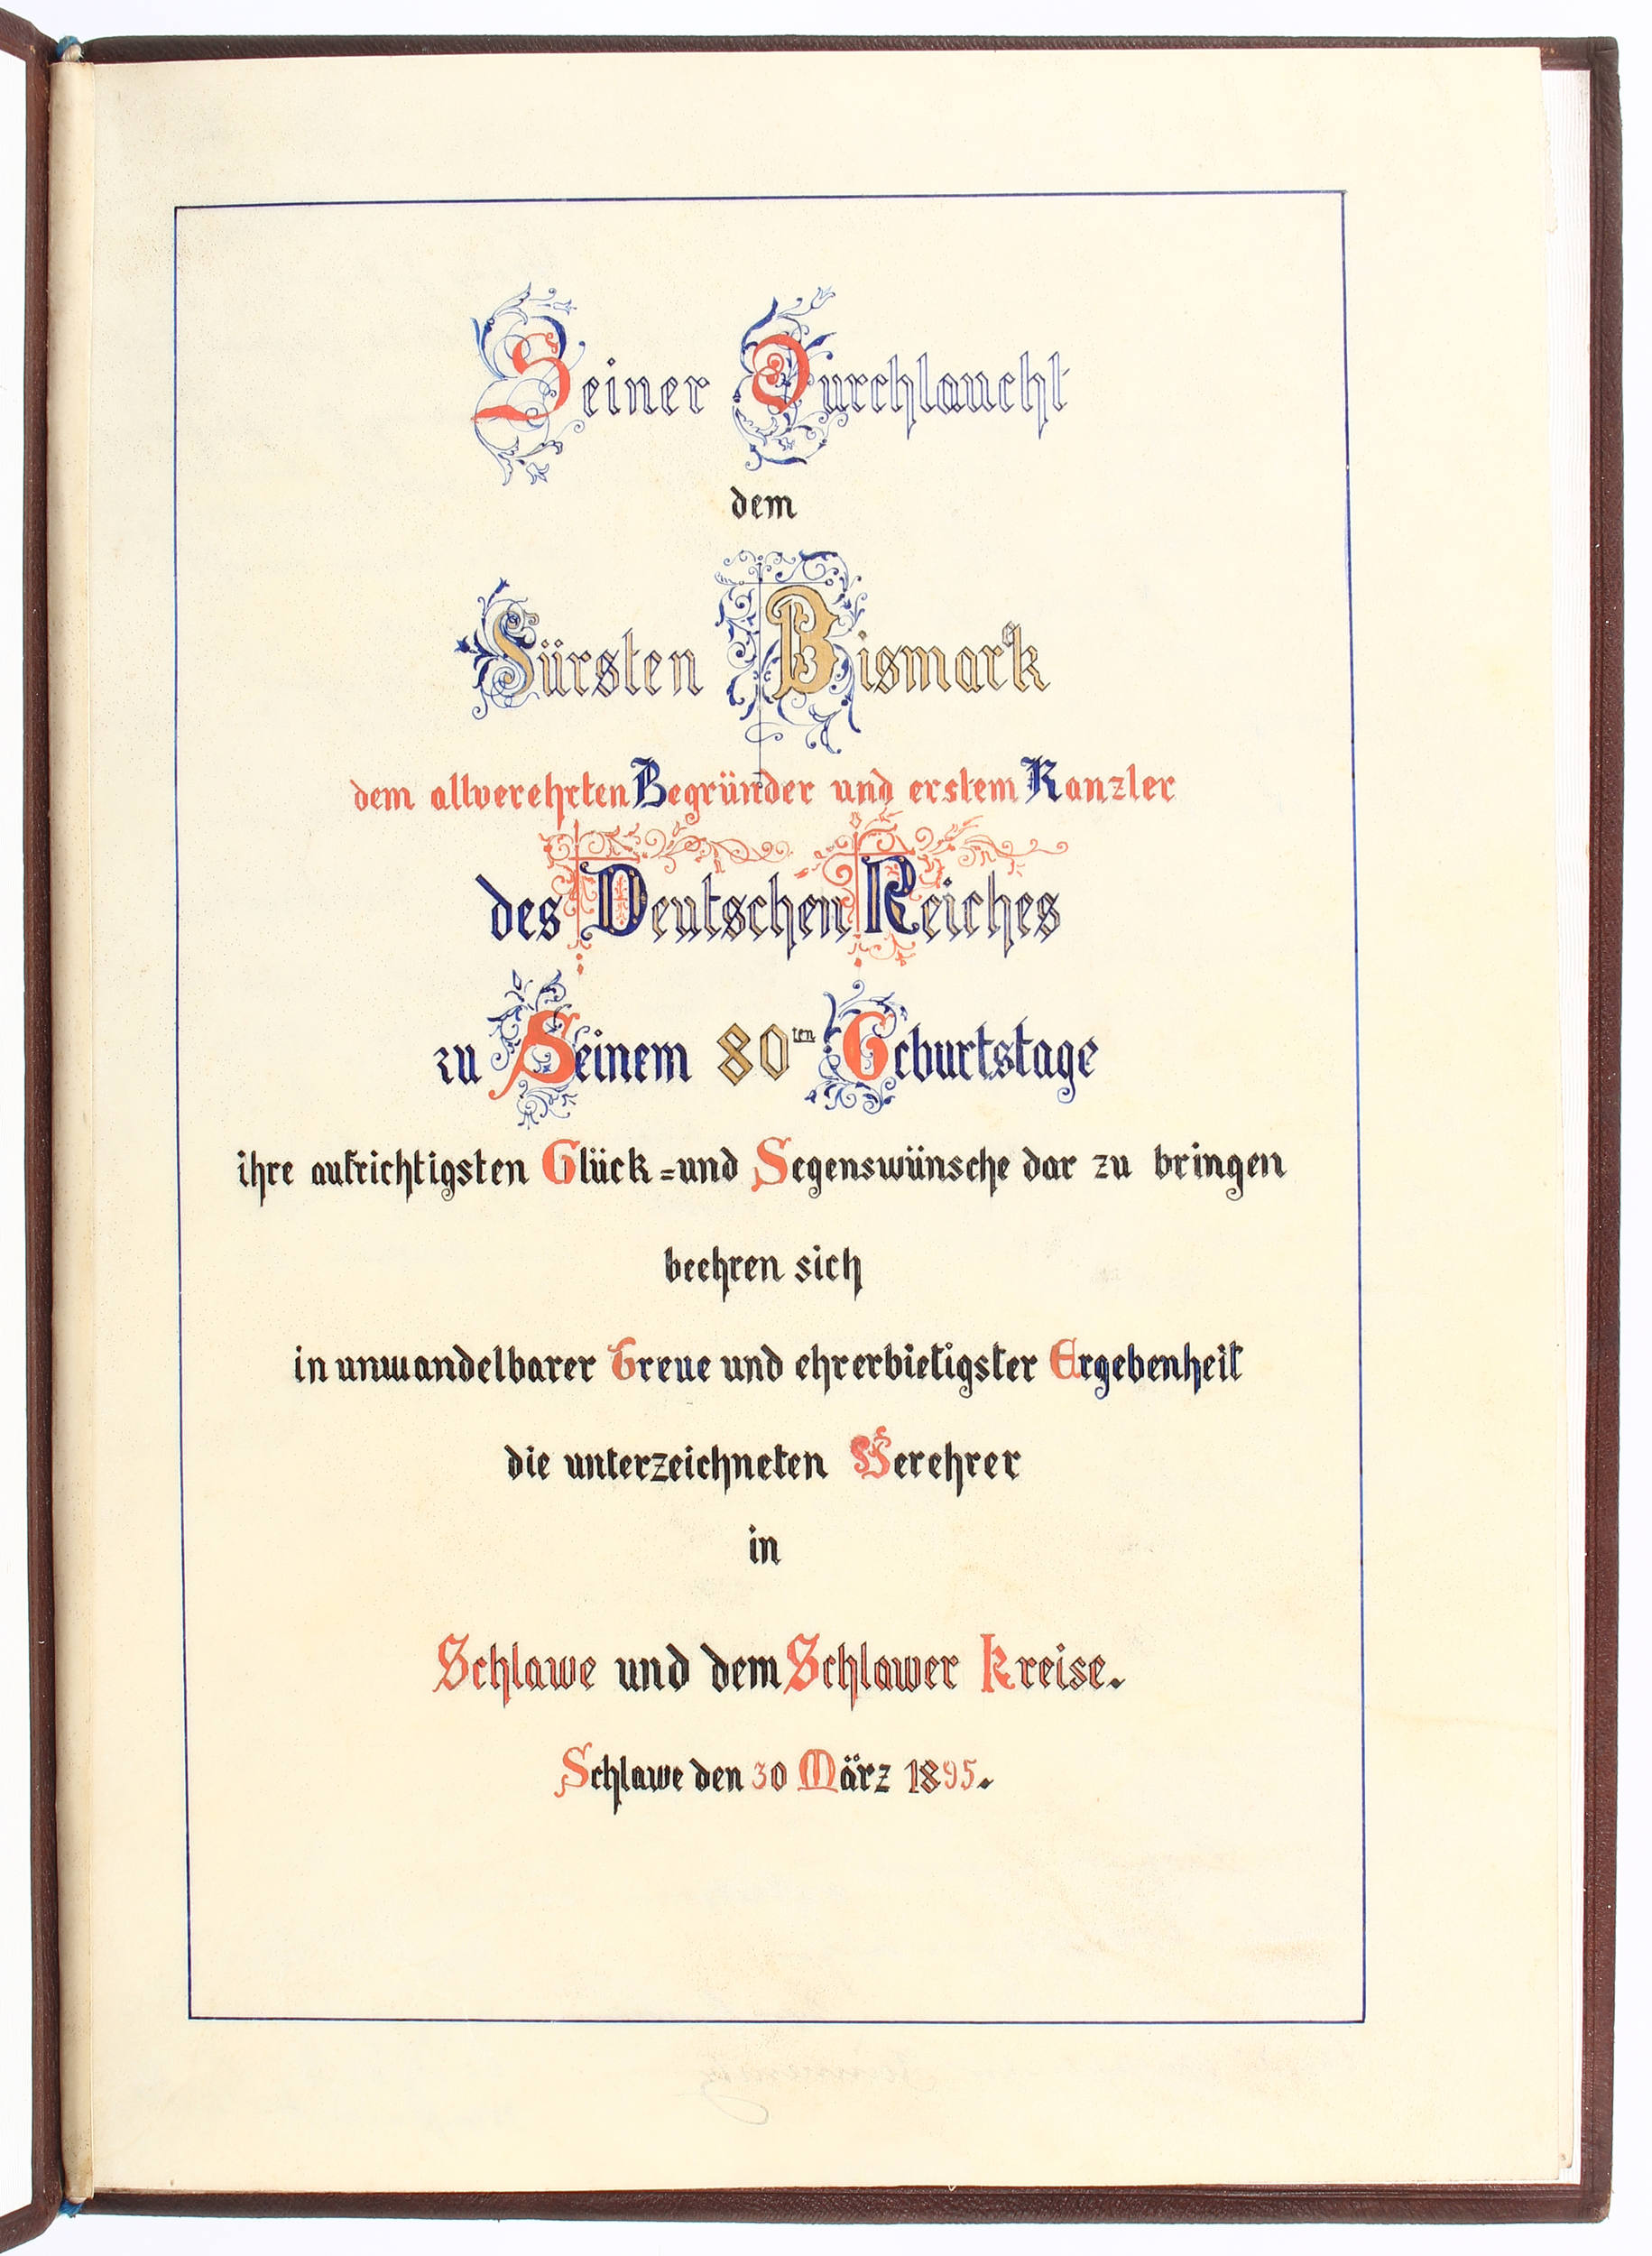 Seiner Durchlaucht
dem
Fürsten Bismark
dem allverehrten Begründer und erstem Kanzler
des Deutschen Reiches
zu Seinem 80ten Geburtstage
ihre aufrichtigsten Glück=und Segenswünsche dar zu bringen
beehren sich
in unwandelbarer Treue und ehrerbietigster Ergebenheit
die unterzeichneten Verehrer
in
Schlawe und dem Schlawer Kreise.
Schlawe den 30 März 1895.